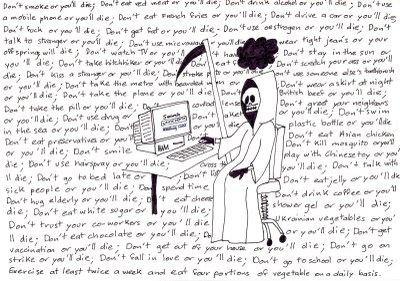 Don't smoke or you'll die; Don't eat red meat or you'll die; Don't drink alcohol or you'll die; Don't use
a mobile phone or you'll die; Don't eat French fries or you'll die; Don't drive a car or you'll die;
Don't fuck or you'll die; Don't get fat or you'll die; Don't use oestrogen or you'll die; Don't
talk to stranger or you'll die; Don't use microwave or you'll die; wear tight jeans or your
offspring will die; Don't watch TV or you'll Don't stay in the sun or
you'll die; Don't take hitchhiker or you'll die; Don't eat Don't scratch your ass or you'll
die; Don't kiss a stranger or you'll die; Don't or you'll Don't use someone else's toothbrush
or you'll die; Don't take the metro with bearded men or Don't wear a skirt at night
or you'll die; Don't take the plane or you'll die; Don't British beef or you'll die;
Don't take the pill or you'll die; Don't Don't greet your neighbours
or you'll die; Don't use drug or Don't swim
in the sea or you'll die; Don't plastic bottle or you'll die;
Don't eat preservatives or you'll Don't eat Asian chicken
or you'll die; Don't smile Don't kill mosquito or you'll
die; Don't play with Chinese toy or you'll
die; Don't use hairspray or you'll die; cross th Don't talk with
ll die; Don't go to bed late or Don't eat jelly or you'll die;
sick people or you'll die; spend time Don't drink coffee or you'll
Don't hug elderly or you'll die; eat cheese shower gel or you'll die;
Don't eat white sugar or you'll die; Ukrainian vegetables or you'll
Don't trust your co-workers or you'll die; or you'll die;
die; Don't eat chocolate or you'll die; Don't or you'll die; Don't get
vaccination or you'll die; Don't get out of your house or you'll die; Don't go on
strike or you'll die; Don't fall in love or you'll die; Don't go to school or you'll die;
Exercise at least twice a week and eat four portions of vegetable on a daily basis.